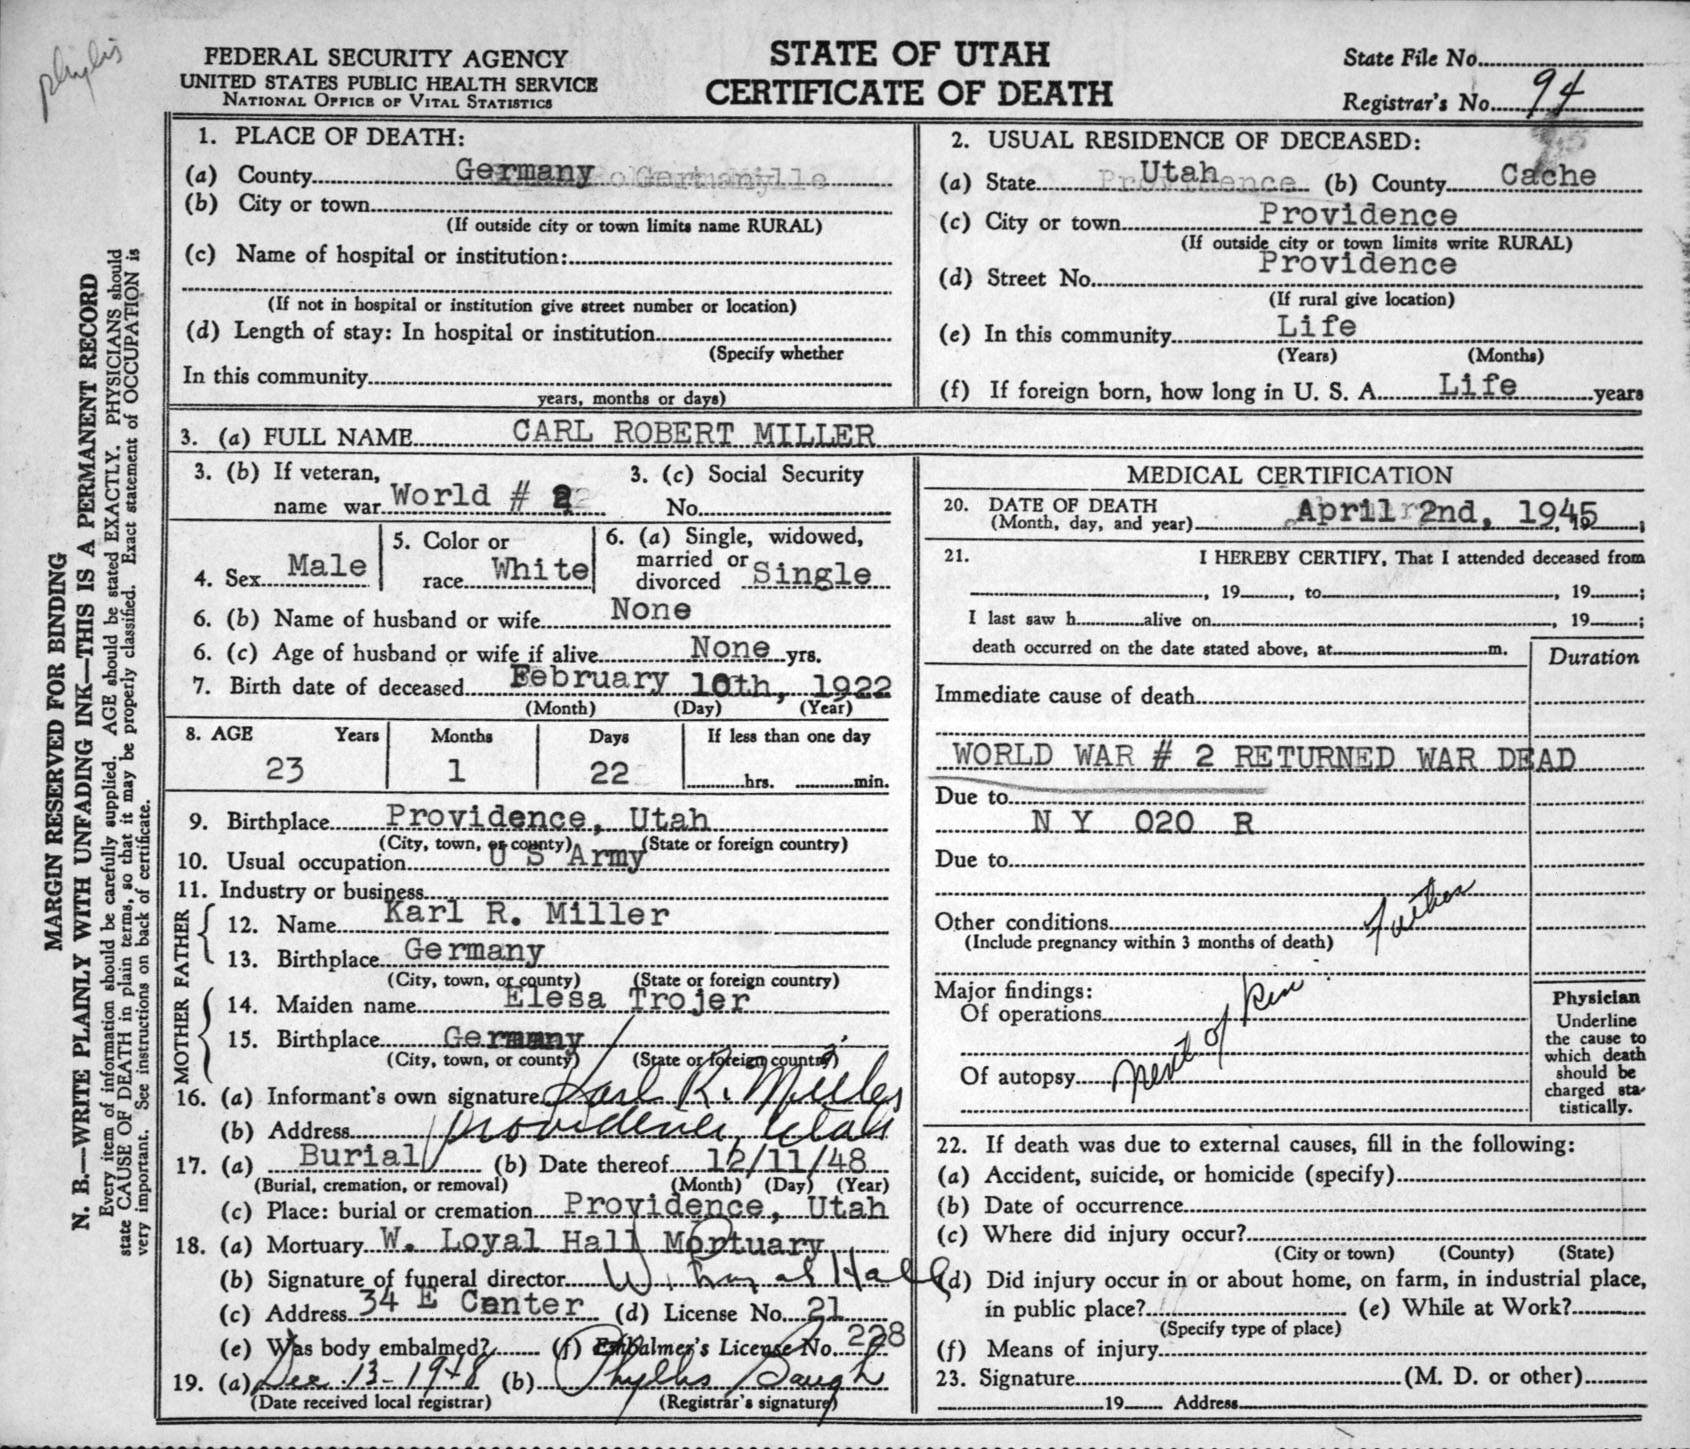 phylis
FEDERAL SECURITY AGENCY
UNITED STATES PUBLIC HEALTH SERVICE
NATIONAL OFFICE OF VITAL STATISTICS
STATE OF UTAH
CERTIFICATE OF DEATH
State File No.
Registrar's No. 94
MARGIN RESERVED FOR BINDING
N. B.—WRITE PLAINLY WITH UNFADING INK—THIS IS A PERMANENT RECORD
Every item of information should be carefully supplied. AGE should be stated EXACTLY. PHYSICIANS should
state CAUSE OF DEATH in plain terms, so that it may be properly classified. Exact statement of OCCUPATION is
very important. See instructions on back of certificate.
1. PLACE OF DEATH:
(a) County Germany
(b) City or town
(If outside city or town limits name RURAL)
(c) Name of hospital or institution:
(If not in hospital or institution give street number or location)
(d) Length of stay: In hospital or institution
(Specify whether
In this community
years, months or days)
2. USUAL RESIDENCE OF DECEASED:
(a) State Utah (b) County Cache
(c) City or town Providence
(If outside city or town limits write RURAL)
(d) Street No. Providence
(If rural give location)
(e) In this community Life
(Years) (Months)
(f) If foreign born, how long in U. S. A. Life years
3. (a) FULL NAME CARL ROBERT MILLER
3. (b) If veteran,
name war World # 2
3. (c) Social Security
No.
4. Sex Male
5. Color or
race White
6. (a) Single, widowed,
married or
divorced Single
6. (b) Name of husband or wife None
6. (c) Age of husband or wife if alive None yrs.
7. Birth date of deceased February 10th, 1922
(Month) (Day) (Year)
8. AGE Years Months Days If less than one day
23 1 22 hrs. min.
9. Birthplace Providence, Utah
(City, town, or county) (State or foreign country)
10. Usual occupation U S Army
11. Industry or business
FATHER
12. Name Karl R. Miller
13. Birthplace Germany
(City, town, or county) (State or foreign country)
MOTHER
14. Maiden name Elesa Trojer
15. Birthplace Germany
(City, town, or county) (State or foreign country)
16. (a) Informant's own signature Karl R. Miller
(b) Address providence, Utah
17. (a) Burial (b) Date thereof 12/11/48
(Burial, cremation, or removal) (Month) (Day) (Year)
(c) Place: burial or cremation Providence, Utah
18. (a) Mortuary W. Loyal Hall Mortuary
(b) Signature of funeral director W. Loyal Hall
(c) Address 34 E Center (d) License No. 21
(e) Was body embalmed? (f) Embalmer's License No. 228
19. (a) Dec 13-1948 (b) Phyllis Baugh
(Date received local registrar) (Registrar's signature)
MEDICAL CERTIFICATION
20. DATE OF DEATH
(Month, day, and year) April 2nd, 1945
21. I HEREBY CERTIFY, That I attended deceased from
, 19 , to , 19 ;
I last saw h alive on , 19 ;
death occurred on the date stated above, at m.
Duration
Immediate cause of death
WORLD WAR # 2 RETURNED WAR DEAD
Due to
N Y 020 R
Due to
Other conditions Father
(Include pregnancy within 3 months of death)
Major findings:
Of operations
Of autopsy next of kin
Physician
Underline
the cause to
which death
should be
charged sta-
tistically.
22. If death was due to external causes, fill in the following:
(a) Accident, suicide, or homicide (specify)
(b) Date of occurrence
(c) Where did injury occur?
(City or town) (County) (State)
(d) Did injury occur in or about home, on farm, in industrial place,
in public place? (e) While at Work?
(Specify type of place)
(f) Means of injury
23. Signature (M. D. or other)
19 Address